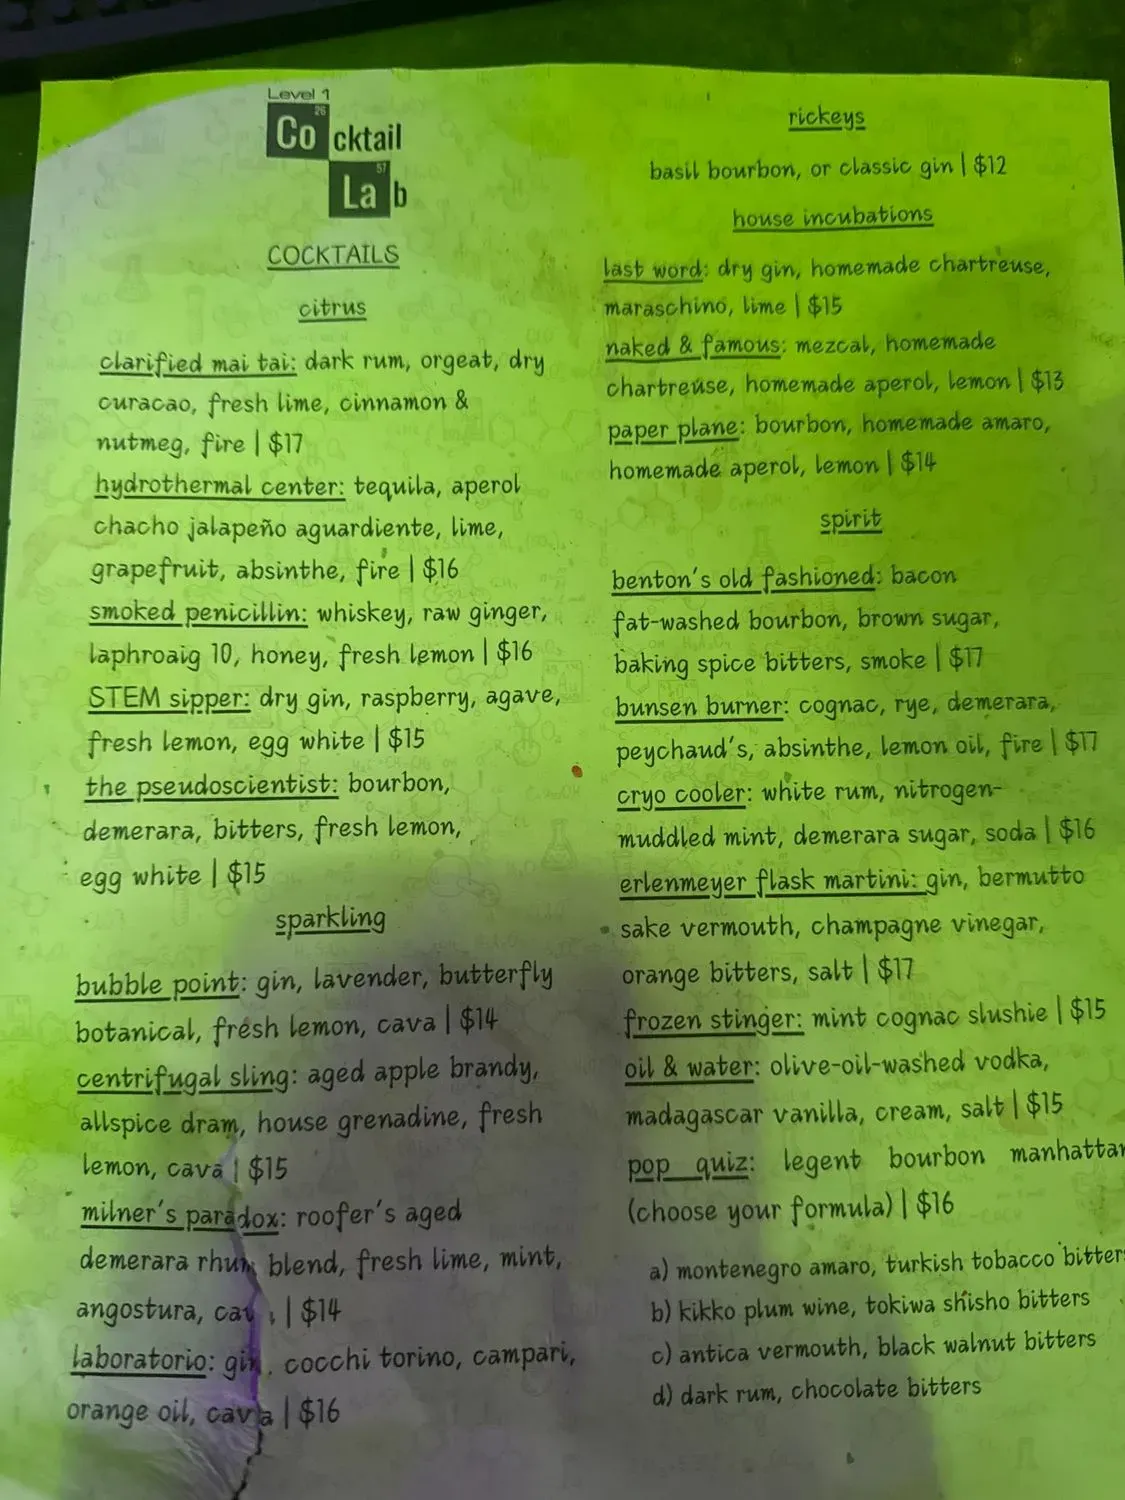 Level 1
26
Co cktail
57
La b
COCKTAILS
citrus
clarified mai tai: dark rum, orgeat, dry
curacao, fresh lime, cinnamon &
nutmeg, fire | $17
hydrothermal center: tequila, aperol
chacho jalapeño aguardiente, lime,
grapefruit, absinthe, fire | $16
smoked penicillin: whiskey, raw ginger,
laphroaig 10, honey, fresh lemon | $16
STEM sipper: dry gin, raspberry, agave,
fresh lemon, egg white | $15
the pseudoscientist: bourbon,
demerara, bitters, fresh lemon,
egg white | $15
sparkling
bubble point: gin, lavender, butterfly
botanical, fresh lemon, cava | $14
centrifugal sling: aged apple brandy,
allspice dram, house grenadine, fresh
lemon, cava | $15
milner's paradox: roofer's aged
demerara rhum blend, fresh lime, mint,
angostura, cava | $14
laboratorio: gin, cocchi torino, campari,
orange oil, cava | $16
rickeys
basil bourbon, or classic gin | $12
house incubations
last word: dry gin, homemade chartreuse,
maraschino, lime | $15
naked & famous: mezcal, homemade
chartreuse, homemade aperol, lemon | $13
paper plane: bourbon, homemade amaro,
homemade aperol, lemon | $14
spirit
benton's old fashioned: bacon
fat-washed bourbon, brown sugar,
baking spice bitters, smoke | $17
bunsen burner: cognac, rye, demerara,
peychaud's, absinthe, lemon oil, fire | $17
cryo cooler: white rum, nitrogen-
muddled mint, demerara sugar, soda | $16
erlenmeyer flask martini: gin, bermutto
sake vermouth, champagne vinegar,
orange bitters, salt | $17
frozen stinger: mint cognac slushie | $15
oil & water: olive-oil-washed vodka,
madagascar vanilla, cream, salt | $15
pop quiz: legent bourbon manhattan
(choose your formula) | $16
a) montenegro amaro, turkish tobacco bitters
b) kikko plum wine, tokiwa shisho bitters
c) antica vermouth, black walnut bitters
d) dark rum, chocolate bitters